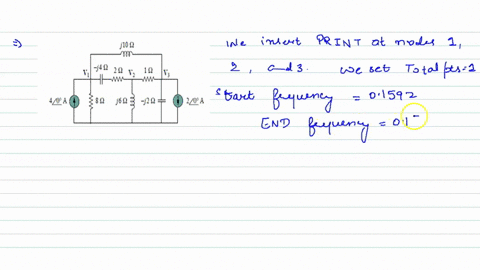 ⇒)
j10 Ω
-j4 Ω
V1
2 Ω
V2
1 Ω
V3
8 Ω
j6 Ω
-j2 Ω
We insert PRINT at nodes 1,
2, and 3. We set Total pts=1
Start fequency = 0.1592
END fequency = 0.1